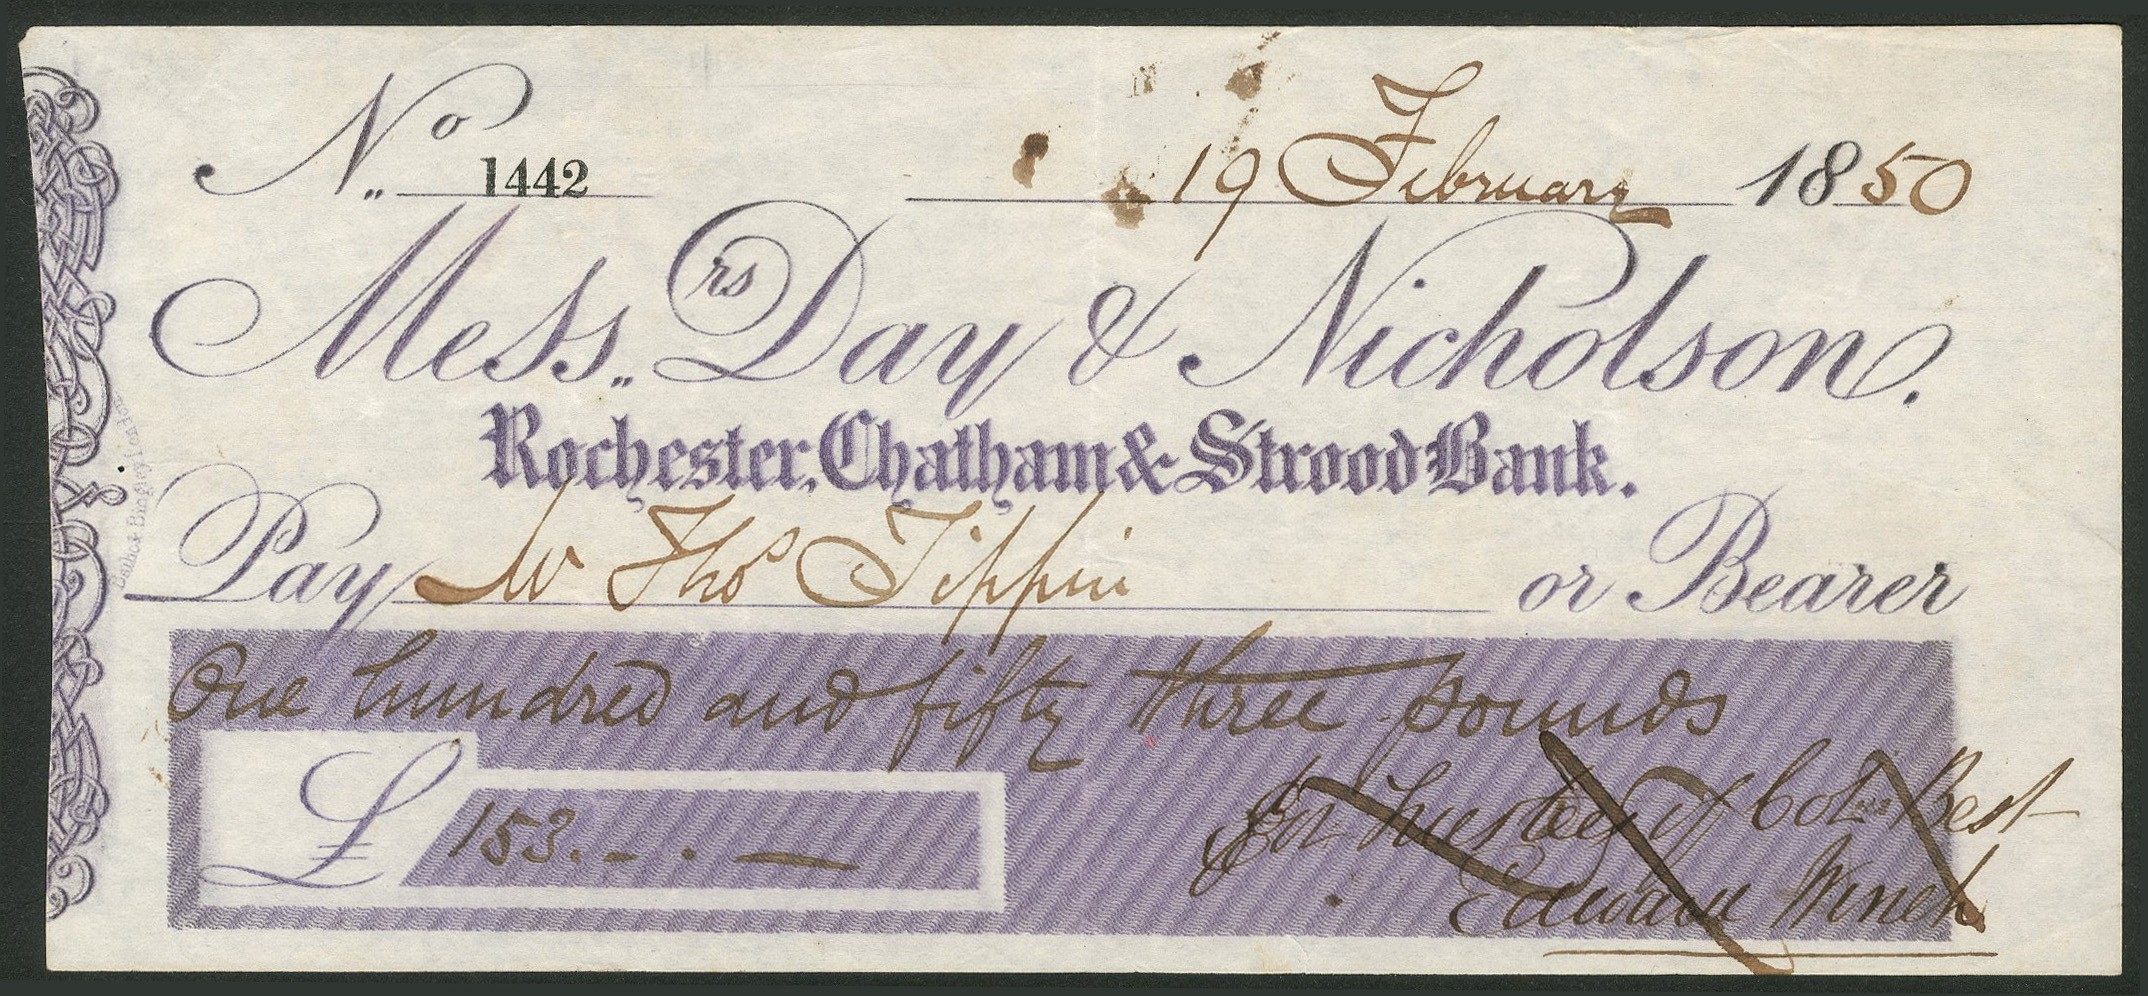 No 1442
19 February 1850
Messrs Day & Nicholson.
Rochester, Chatham & Strood Bank.
Pay Mr Thos Tippin or Bearer
One hundred and fifty three pounds
£ 153. – . —
For Trustees of Colnl Best
Edward Winch
Bingley London